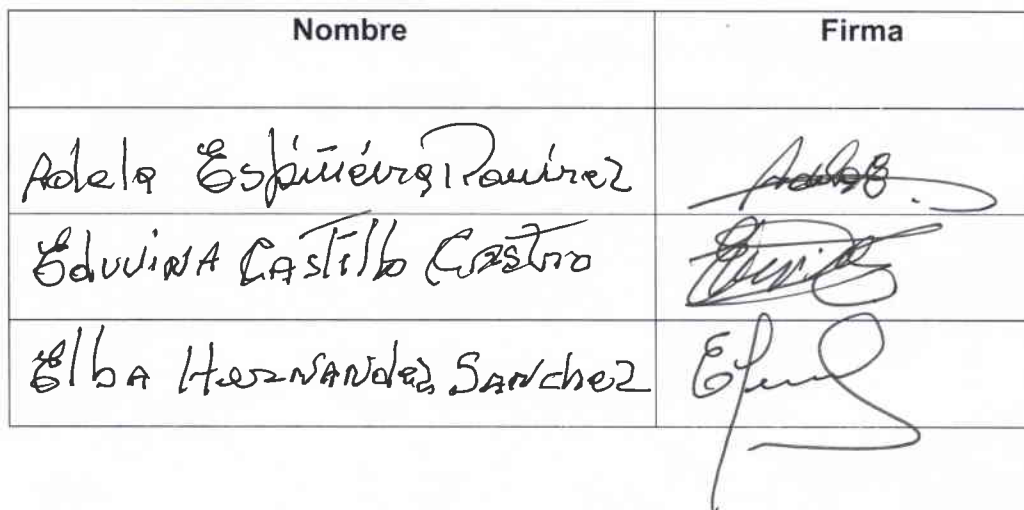 Nombre Firma
Adela Espiñeira Ramírez
Eduvina Castillo Castro
Elba Hernandez Sanchez